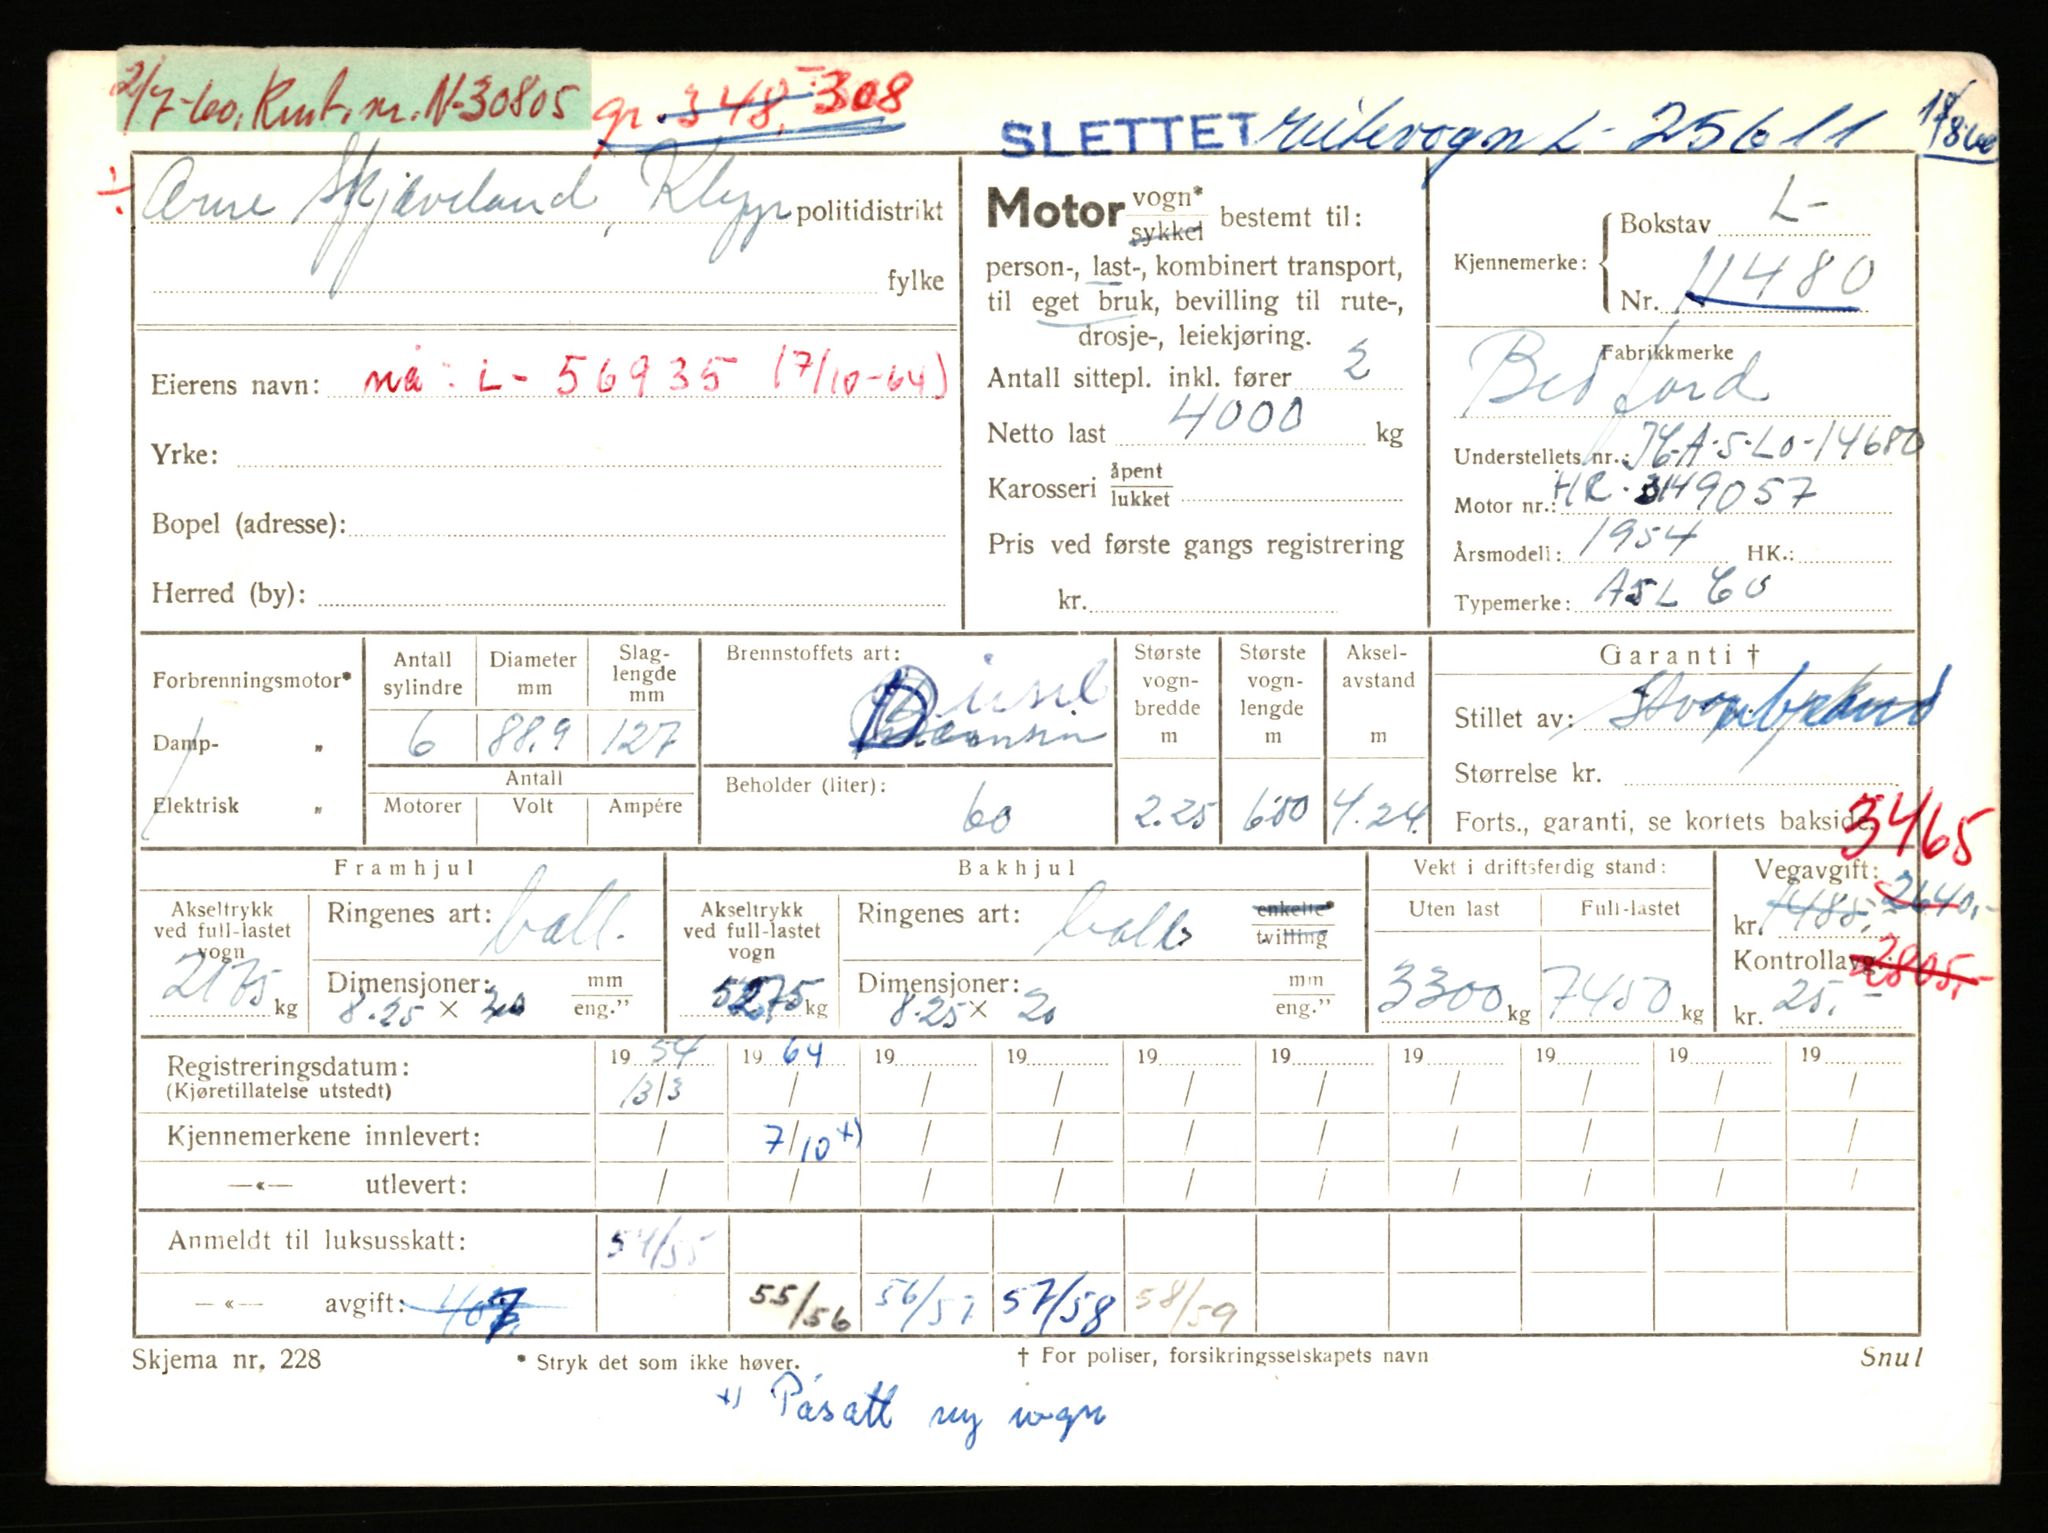 2/7-60. Kmt. nr. N-30805 gr. 348,- 308
SLETTET L- 25611 18/8-60
÷ Arne Skjæveland, Klepp politidistrikt
fylke
Eierens navn: nå: L- 56935 (7/10-64)
Yrke:
Bopel (adresse):
Herred (by):
Motor vogn* sykkel bestemt til:
person-, last-, kombinert transport,
til eget bruk, bevilling til rute-,
drosje-, leiekjøring.
Antall sittepl. inkl. fører 2
Netto last 4000 kg
Karosseri åpent lukket
Pris ved første gangs registrering
kr.
Kjennemerke: Bokstav L-
Nr. 11480
Fabrikkmerke
Bedford
Understellets nr.: A-5-LO-14680
Motor nr.: HR- 3149057
Årsmodell: 1954 HK.:
Typemerke: A5L
Forbrenningsmotor*
Damp- „
Elektrisk „
Antall sylindre 6
Diameter mm 88,9
Slag-lengde mm 127
Antall
Motorer Volt Ampére
Brennstoffets art: Diesel
Beholder (liter): 60
Største vogn-bredde m 2.25
Største vogn-lengde m
Aksel-avstand m 4.24
Garanti †
Stillet av: Storebrand
Størrelse kr.
Forts., garanti, se kortets bakside. 3465
Framhjul
Akseltrykk ved full-lastet vogn 2175 kg
Ringenes art: ball.
Dimensjoner: 8.25 × 20 mm eng."
Bakhjul
Akseltrykk ved full-lastet vogn 5275 kg
Ringenes art: ball enkelte* tvilling
Dimensjoner: 8.25 × 20 mm eng."
Vekt i driftsferdig stand:
Uten last 3300 kg
Full-lastet 7450 kg
Vegavgift:
kr. 1485,- 2640,-
Kontrollavg.: 2805,-
kr. 25,-
Registreringsdatum: 1954 1964 19 19 19 19 19 19 19 19
(Kjøretillatelse utstedt) 13/3 / / / / / / / / /
Kjennemerkene innlevert: / 7/10 x) / / / / / / / /
—«— utlevert: / / / / / / / / / /
Anmeldt til luksusskatt: 54/55
—«— avgift: 55/56 56/57 57/58 58/59
Skjema nr. 228 * Stryk det som ikke høver. † For poliser, forsikringsselskapets navn Snul
x) Påsatt ny vogn